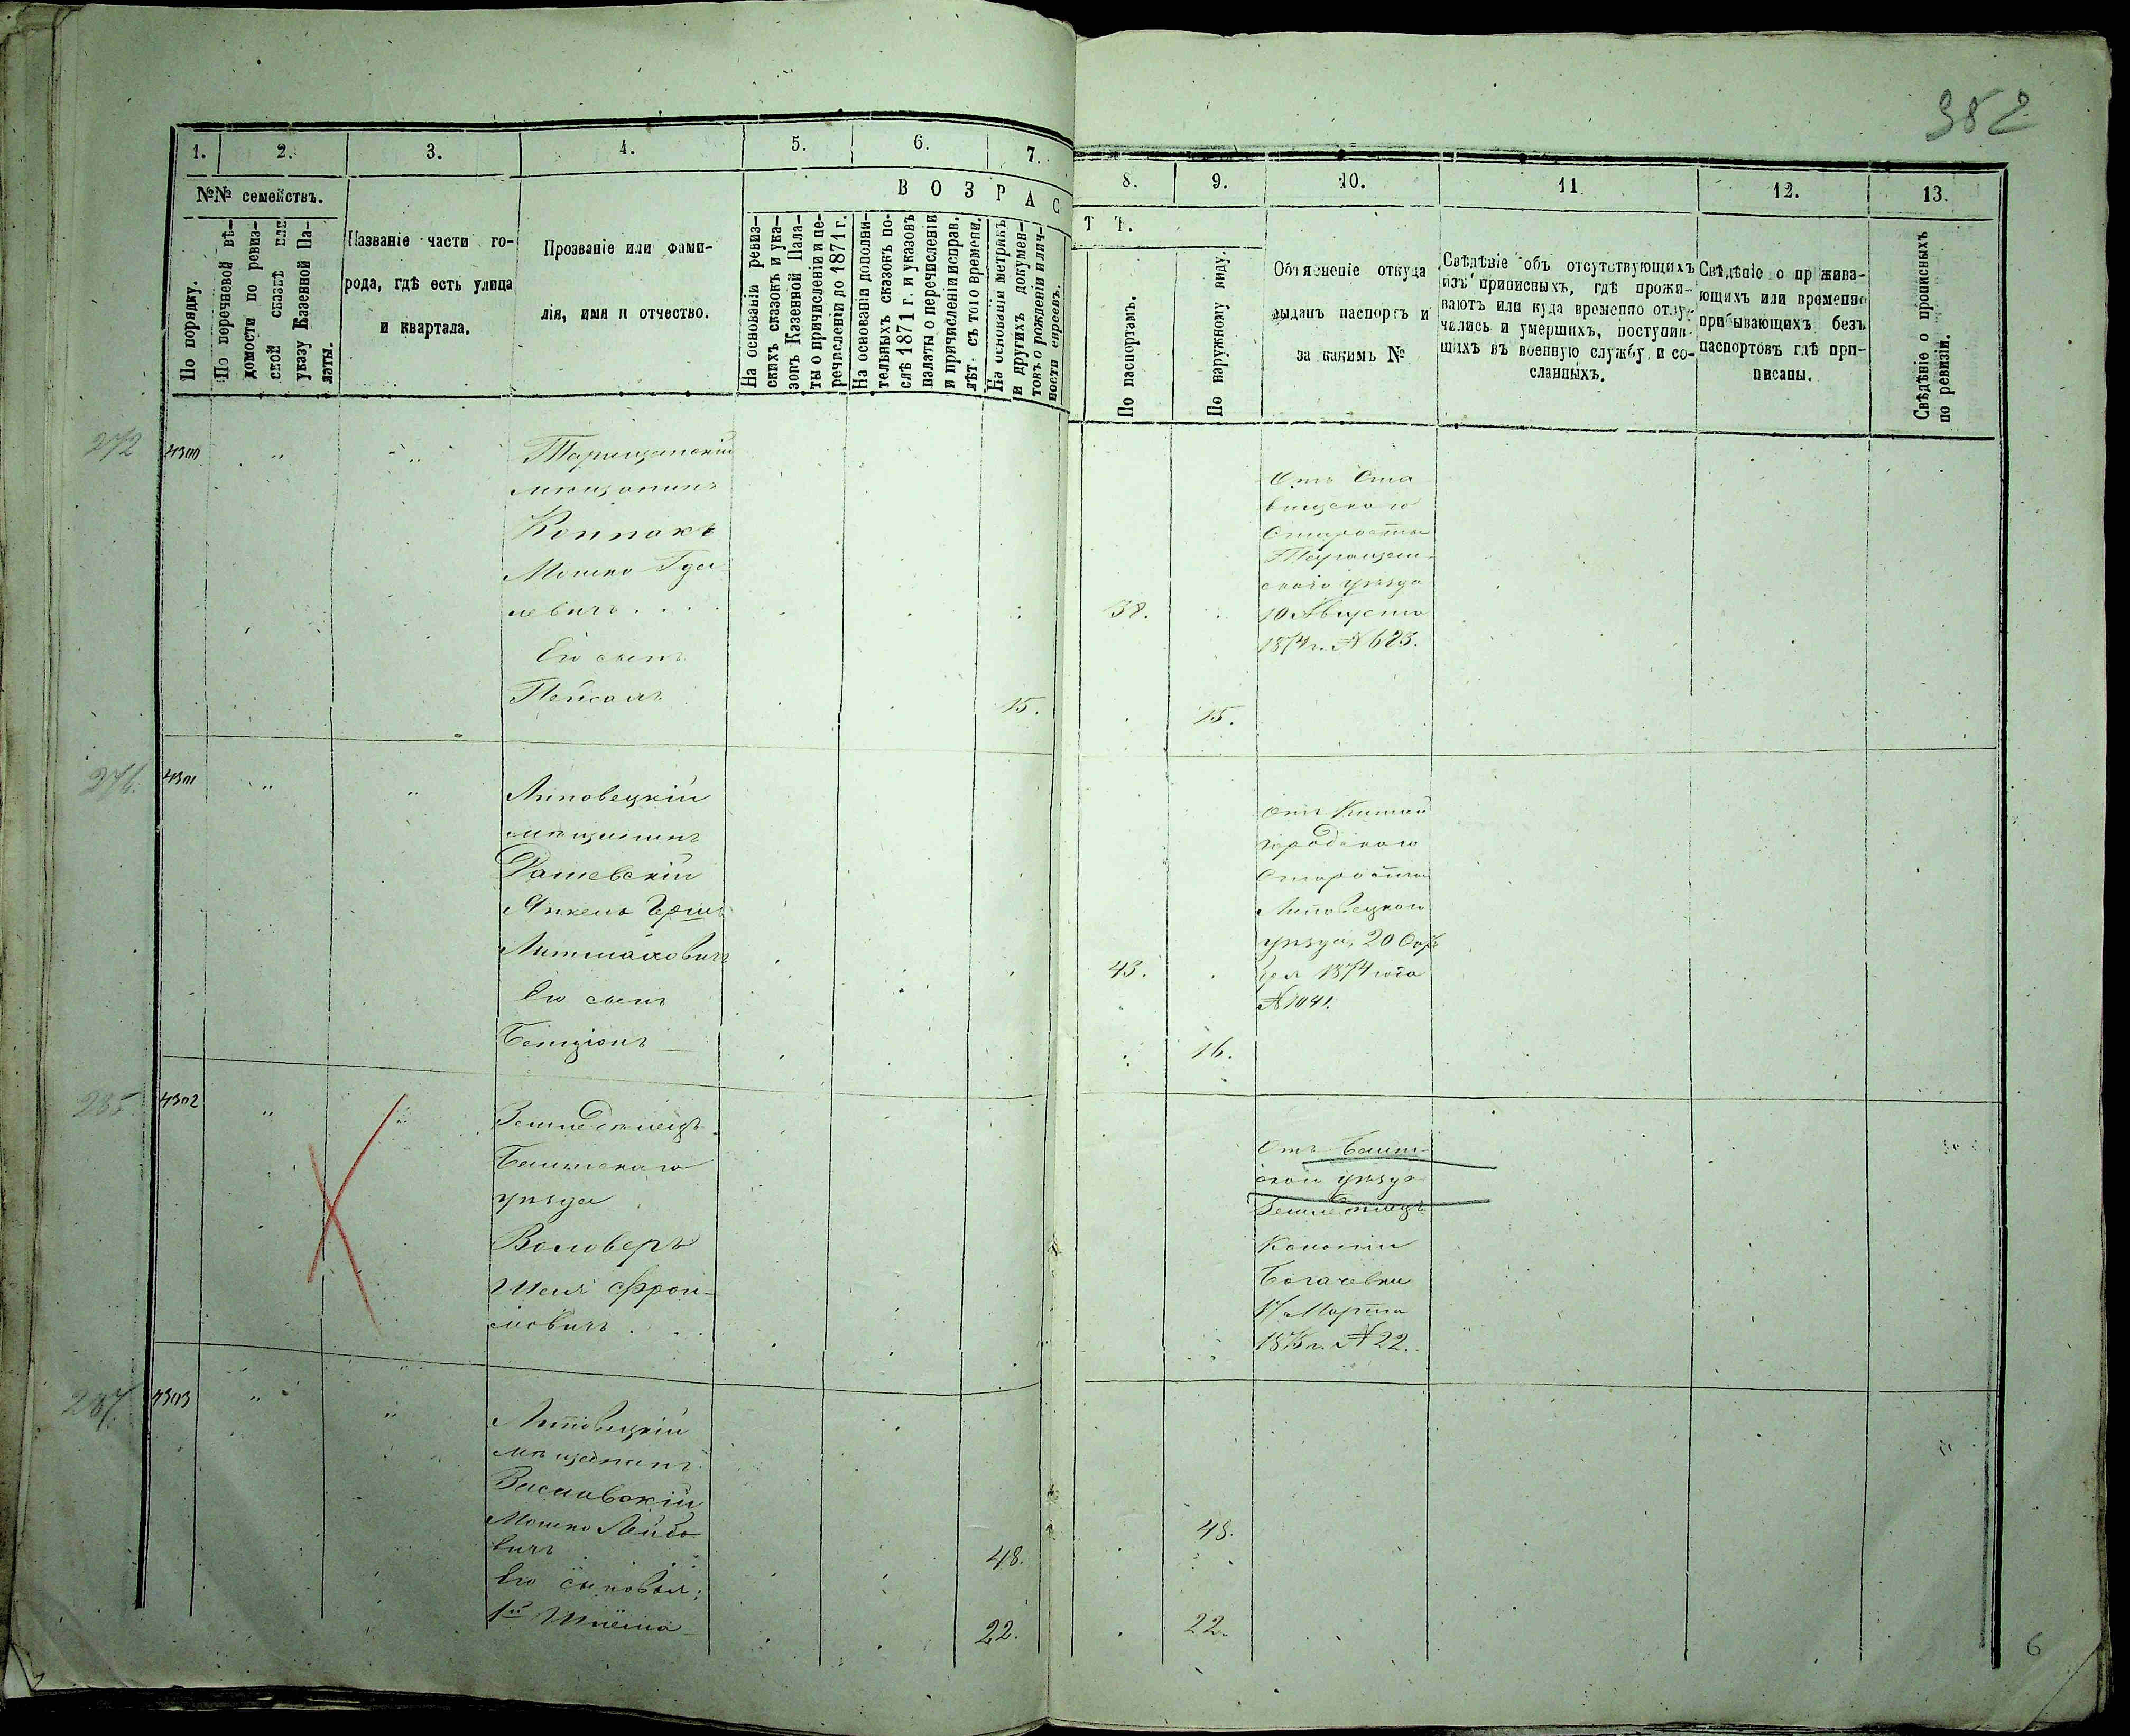 352
1. 2. 3. 4. 5. 6. 7.
8. 9. 10. 11 12. 13.
№№ семействъ.
В О З Р А С
Т Ъ.
По порядку.
По перечневой вѣ-
домости по ревиз-
ской сказкѣ или
указу Казенной Па-
латы.
Названіе части го-
рода, гдѣ есть улица
и квартала.
Прозваніе или фами-
лія, имя и отчество.
На основаніи ревиз-
скихъ сказокъ и ука-
зокъ Казенной Пала-
ты о причисленіи и пе-
речисленіи до 1871 г.
На основаніи дополни-
тельныхъ сказокъ по-
слѣ 1871 г. и указовъ
палаты о перечисленіи
и причисленіи исправ.
лѣт. съ того времени.
На основаніи метрикъ
и другихъ докумен-
товъ о рожденіи и лич-
ности евреевъ.
По паспортамъ.
По наружному виду.
Объясненіе откуда
выданъ паспортъ и
за какимъ №
Свѣдѣніе объ отсутствующихъ
изъ приписныхъ, гдѣ прожи-
ваютъ или куда временно отлу-
чились и умершихъ, поступив-
шихъ въ военную службу и со-
сланныхъ.
Свѣдѣніе о прожива-
ющихъ или временно
прибывающихъ безъ
паспортовъ гдѣ при-
писаны.
Свѣдѣніе о прописныхъ
по ревизіи.
272 4300 " "
Таращанскій
мѣщанинъ
Колпакъ
Мошко Гда
левичъ . . . . 38.
Его сынъ
Пейсахъ 15. 15.
Отъ Ста
вищского
Старосты
Таращан-
скаго уѣзда
10 Августа
1874 г. № 623.
4301 " "
Липовецкій
мѣщанинъ
Дашевскій
Янкель Гершъ
Литмановичъ 43.
Его сынъ
Бенціонъ 16.
Отъ Китай
городскаго
Старосты
Липовецкаго
уѣзда, 20 Октя
бря 1874 года
№ 1041.
285 4302 " "
Земледѣлецъ
Балтскаго
уѣзда
Воловеръ
Шая Фрои-
мовичъ . . .
Отъ Балт-
скаго уѣзда
Земледѣлец.
Колоніи
Богачевки
17 Марта
1875 г. № 22.
287. 4303 " "
Липовецкій
мѣщанинъ
Заславскій
Мошко Лейбо-
вичъ 48. 48.
Его сыновья:
1й Шлёма 22. 22.
6